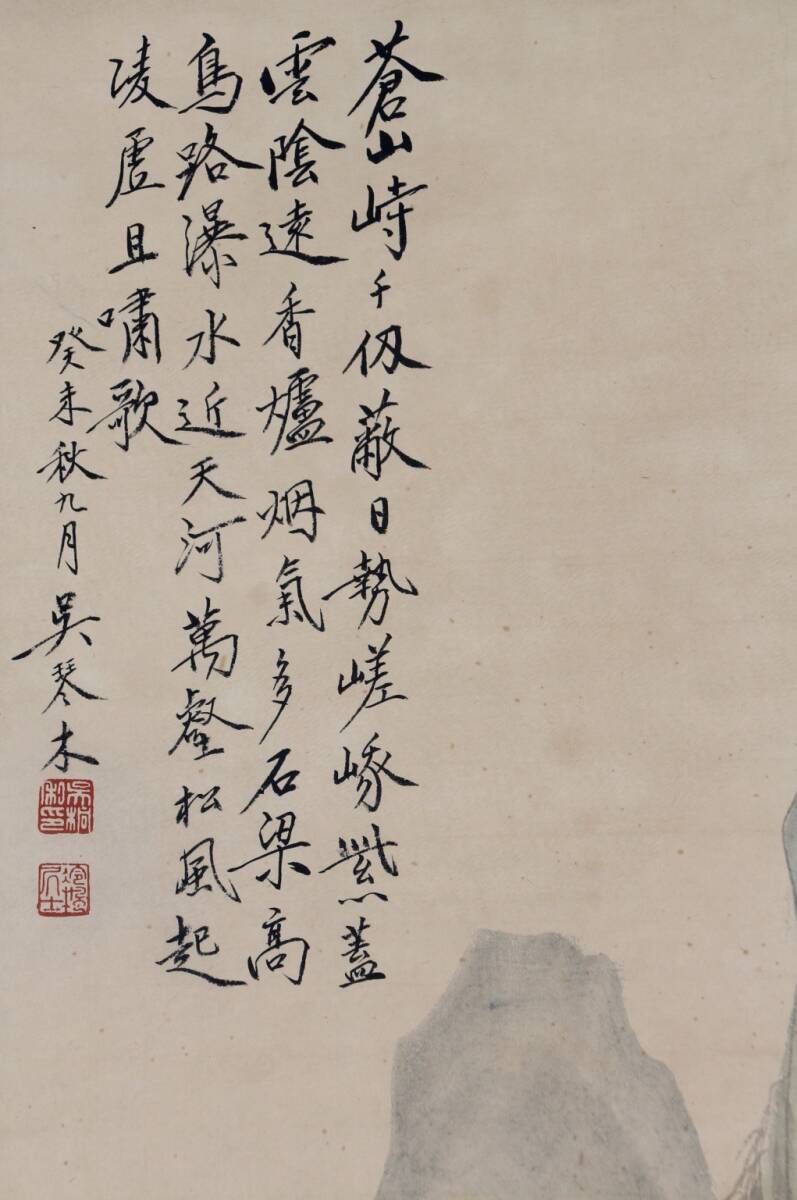 蒼山峙千仭蔽日勢嵯峨紫蓋
雲陰遠香爐烟氣多石梁高
鳥路瀑水近天河萬壑松風起
凌虛且嘯歌
癸未秋九月吳琴木
吳桐利印
冷槐居士